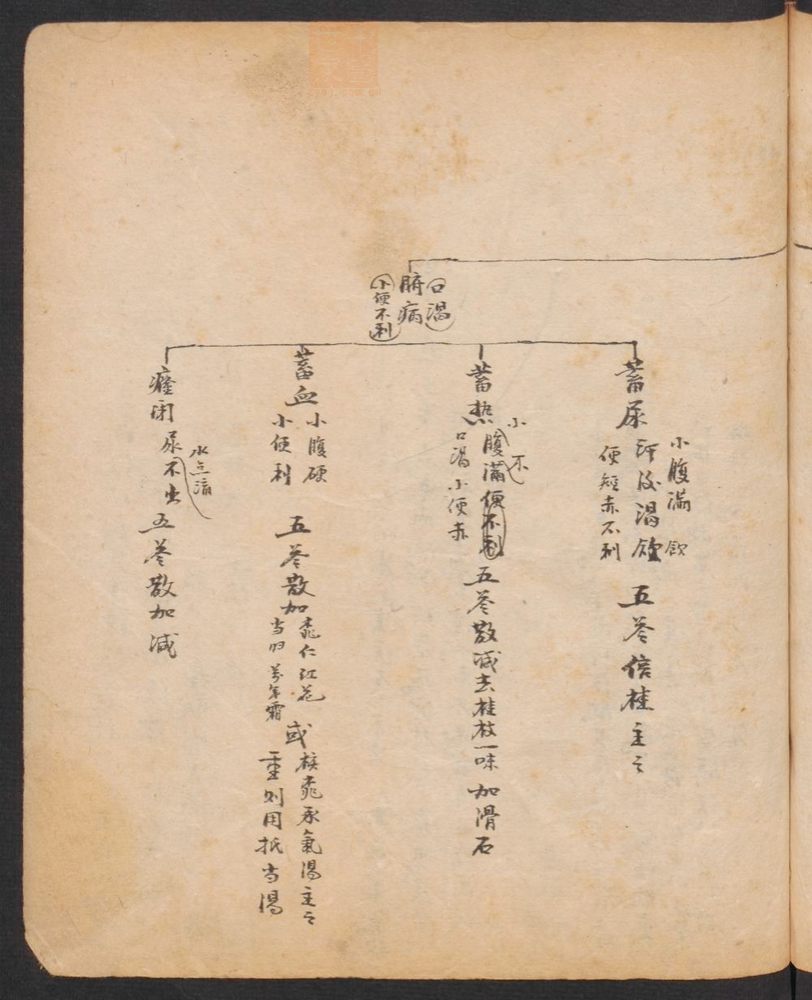 口渴
腑病
小便不利
蓄尿
小腹满 飲
渴
便短赤不利
五苓倍桂主之
蓄热
小 不
腹满便不利
口渴小便赤
五苓散减去桂枝一味 加滑石
蓄血
小腹硬
小便利
五苓散加
桃仁红花
当归 霜
或
核桃承氣湯主之
重则用抵当湯
癃闭
尿不出
水点滴
五苓散加减